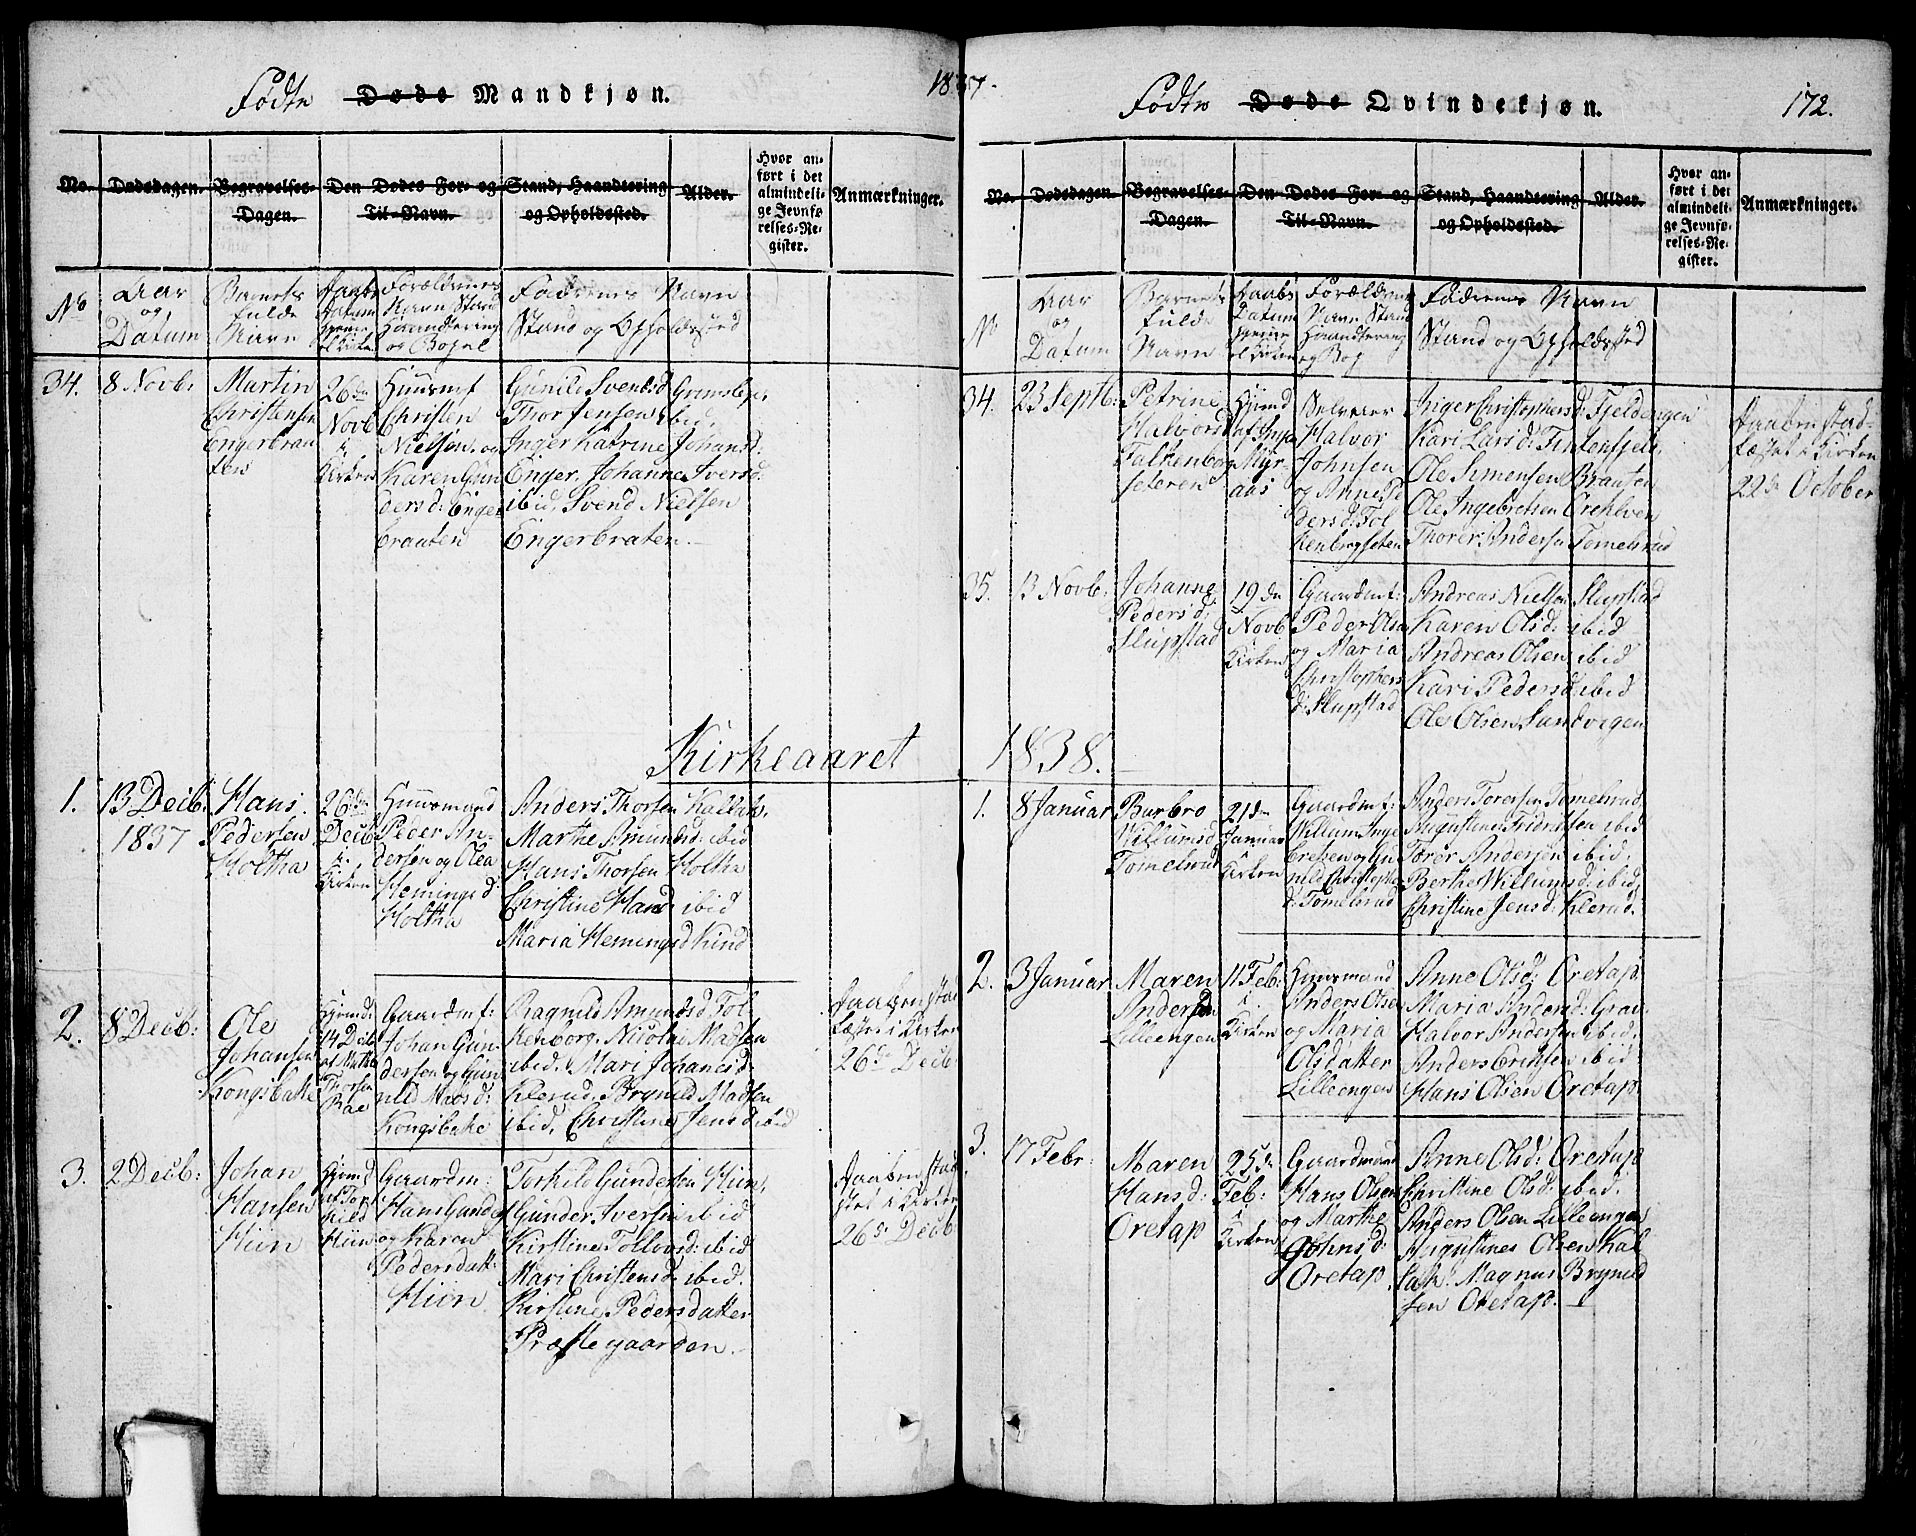 Fødte Døde Mandkjøn.
1837.
No.
Dødsdagen.
Begravelses-
Dagen.
Den Dødes For- og
Til-Navn.
Stand, Haandtering
og Opholdssted.
Alder.
Hvor an-
ført i det
almindeli-
ge Jevnfø-
relses-Re-
gister.
Anmærkninger.
No
Aar
og
Datum
Barnets
fulde
Navn
Daabs
Datum
hjemme
el. Kirken
Forældrenes
Navn Stand
Haandtering
og Bopæl
Faddernes Navn
Stand og Opholdssted
34.
8 Novb:
Martin
Christensen
Engerbraa
ten
26de
Novb
i
Kirken
Huusmd
Christen
Nielsen og
Karen Gun
dersd: Enger
braaten
Gunild Svendsd Grimsbye,
Thor Jensen ibid,
Inger Katrine Johansd:
Enger, Johanne Iversd:
ibid, Svend Nielsen
Engerbraten.
Kirkeaaret
1.
13 Decb:
1837
Hans
Pedersen
Holtha
26de
Decb
i
Kirken
Huusmand
Peder An-
dersen og Olea
Hemingsd:
Holtha
Anders Thorsen Kallak,
Marthe Amundsd: ibid
Hans Thorsen Holtha
Christine Hansd ibid
Maria Hemingsd Kind
2.
8 Decb:
Ole
Johansen
Kongsbakke
Hjemd:
14 Decb
af Mathis
Thorsen
Bae
Gaardmd:
Johan Gun-
dersen og Gun
nild Madsd:
Kongsbake
Ragnild Amundsd Fol
kenborg. Nicolai Madsen
ibid. Mari Johanesd:
Klerud. Brynild Madsen
ibid, Christine Jensd ibid
Daaben stad
fæstet i Kirken
26de Decb.
3.
2 Decb:
Johan
Hansen
Hiin
Hjemd
af Tor
kild
Hiin
Gaardm:
Hans Gunders
og Karen
Pedersdatt:
Hiin
Torkild Gundersen Hiin,
Gunder Iversen ibid
Kirstine Tollevsd: ibid
Mari Christensd: ibid.
Kirstine Pedersdatter
Præstegaarden.
Daaben stad
fæstet i Kirken
26de Decb.
Fødte Døde Qvindekjøn.
172.
No.
Dødsdagen
Begravelses-
Dagen.
Den Dødes For- og
Til-Navn.
Stand, Haandtering
og Opholdssted.
Alder.
Hvor an-
ført i det
almindeli-
ge Jevnfø-
relses-Re-
gister.
Anmærkninger.
No
Aar
og
Datum
Barnets
fulde
Navn
Daabs
Datum
hjemme
el. Kirken
Forældrenes
Navn Stand
Haandtering
og Bop
Faddernes Navn
Stand og Opholdssted
34.
23 Septb:
Petrine
Halvorsd
Falkenborg
seteren
Hjemd
Myr-
aas
Selveier
Halvor
Johnsen
og Anne Pe
dersd: Fol
kenborgseten
Inger Christophersd: Fjeldengen
Kari Larsd:
Ole Simensen Braaten
Ole Ingebretsen
Thorer Andersen Tomelsrud
Daaben stad-
fæstet i Kirken
22de October
35.
13 Novb:
Johanne
Pedersd:
Slupstad
19de
Novb
Kirken
Gaardmd:
Peder Olsen
og Maria
Christophers
d: Slupstad
Andreas Nielsen Slupstad
Karen Olsd: ibid
Andreas Olsen ibid
Kari Pedersd ibid
Ole Olsen Sandvigen
1838.
1.
8 Januar
Barbro
Villumsd
Tomelsrud
21de
Januar
i
Kirken
Gaardmd:
Willum Inge
bretsen og Gu
nild Christophe
d: Tomelsrud
Anders Torersen Tomelsrud,
Augustinus Fridrichsen ibid
Torer Andersen ibid.
Berthe Willumsd: ibid,
Christine Jensd: Klerud.
2.
3 Januar
Maren
Andersdn
Lilleengen
11 Feb:
i
Kirken
Huusmand
Anders Olsen
og Maria
Olsdatter
Lilleengen
Anne Olsd: Oretap.
Maria Andersd:
Halvor Andersen ibid:
Anders Eriksen ibid:
Hans Olsen Oretap.
3.
17 Febr:
Maren
Hansd:
Oretap
25de
Feb:
i
Kirken
Gaardmand
Hans Olsen
og Marthe
Johnsd:
Oretap
Anne Olsd: Oretap
Christine Olsd: ibid.
Anders Olsen Lilleengen
Augustines Olsen Kal
lak. Magnus Brynild
sen Oretap.